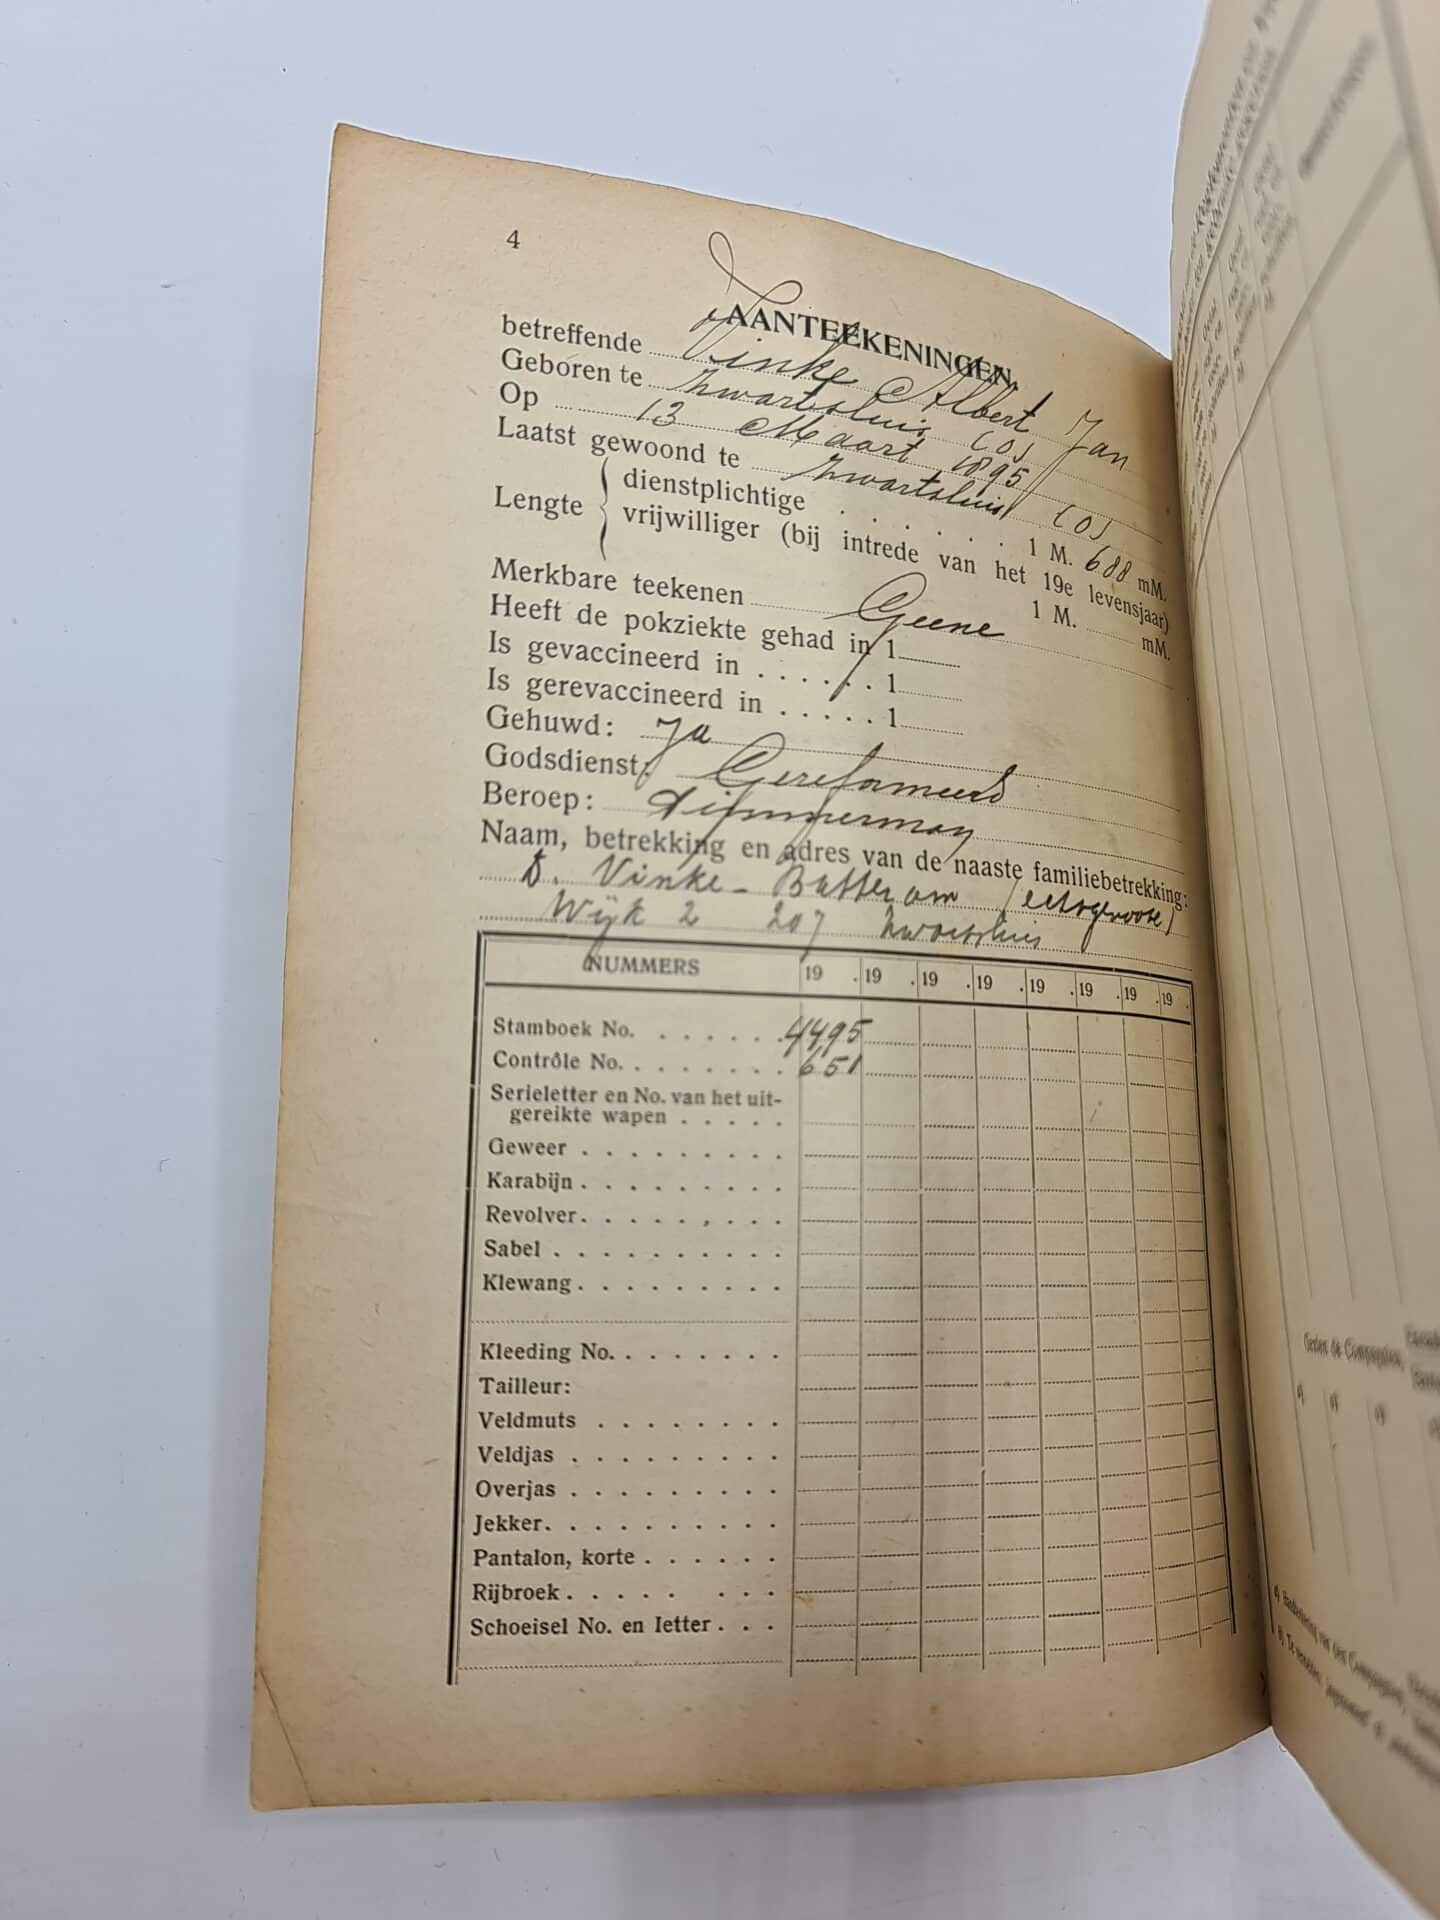 4
AANTEEKENINGEN
betreffende Vinke Albert Jan
Geboren te Zwartsluis (O)
Op 13 Maart 1895
Laatst gewoond te Zwartsluis (O)
Lengte { dienstplichtige . . . . . . 1 M. 688 mM.
vrijwilliger (bij intrede van het 19e levensjaar) 1 M. mM.
Merkbare teekenen Geene
Heeft de pokziekte gehad in 1
Is gevaccineerd in . . . . . . 1
Is gerevaccineerd in . . . . . 1
Gehuwd: Ja
Godsdienst: Gereformeerd
Beroep: Timmerman
Naam, betrekking en adres van de naaste familiebetrekking:
Vinke - (echtgenoote)
Wijk 2 207 Zwartsluis
NUMMERS 19 . 19 . 19 . 19 . 19 . 19 . 19 . 19 .
Stamboek No. . . . . . . 4495
Contrôle No. . . . . . . . 651
Serieletter en No. van het uit-
gereikte wapen . . . . .
Geweer . . . . . . . . .
Karabijn . . . . . . . . .
Revolver . . . . . . . . .
Sabel . . . . . . . . . .
Klewang . . . . . . . . .
Kleeding No. . . . . . . .
Tailleur:
Veldmuts . . . . . . . .
Veldjas . . . . . . . . .
Overjas . . . . . . . . .
Jekker . . . . . . . . . .
Pantalon, korte . . . . . .
Rijbroek . . . . . . . .
Schoeisel No. en letter . . .
Onder de Compagnie,